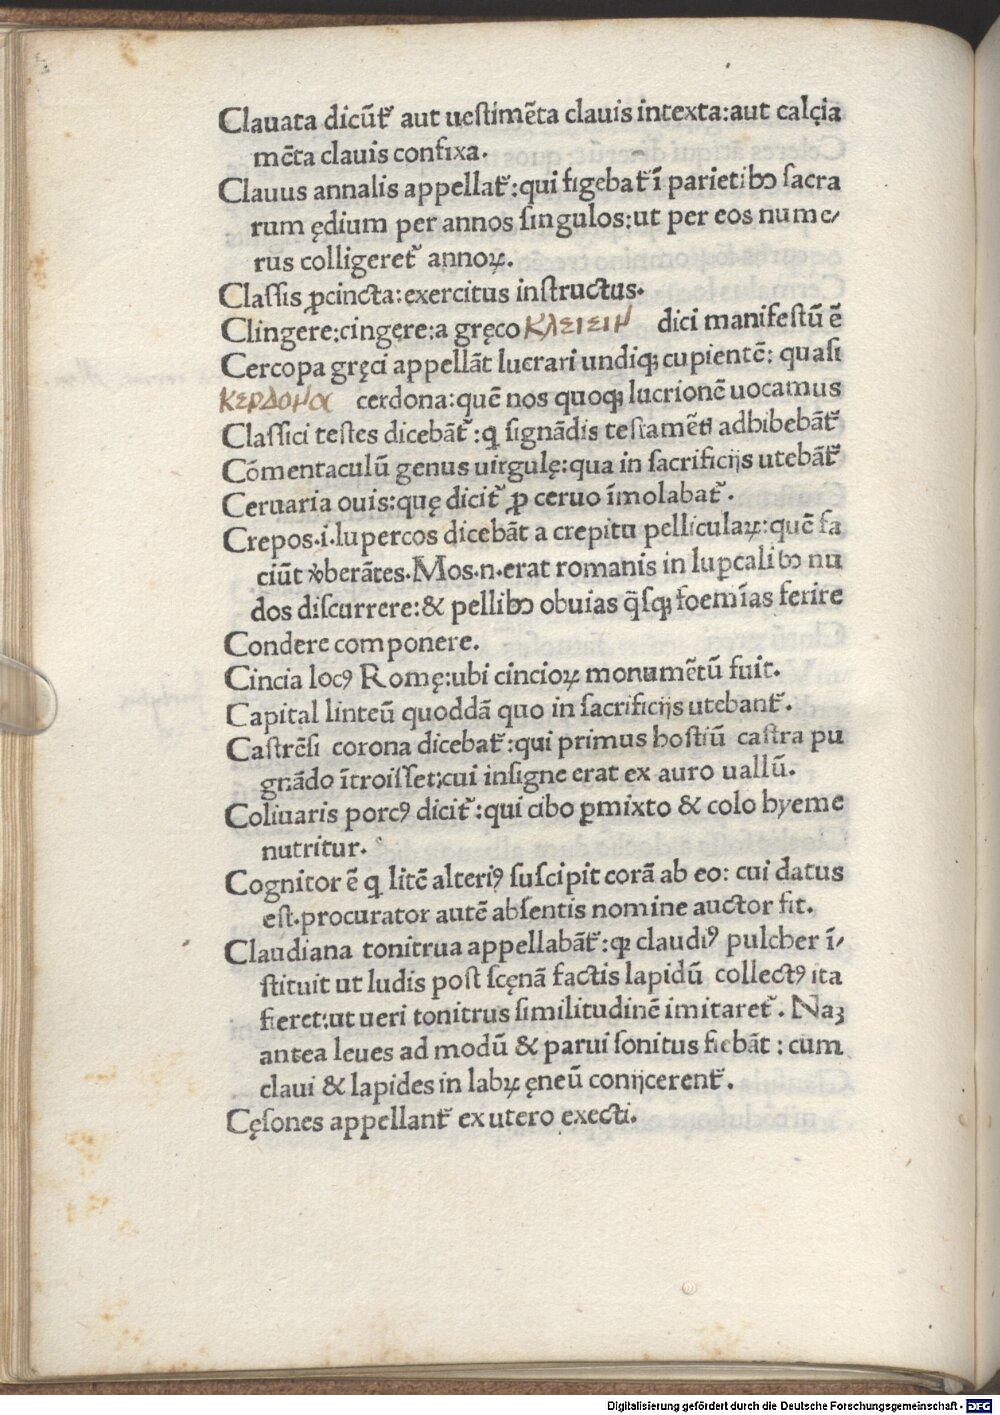 Clauata dicũt᷒ aut ueſtimẽta clauis intexta:aut calçia
mẽta clauis confixa.
Clauus annalis appellat᷒:qui figebat᷒ ĩ parietibꝰ ſacra
rum ędium per annos ſingulos:ut per eos nume/
rus colligeret᷒ annoꝝ.
Claſſis ꝓcincta:exercitus inſtructus.
Clingere:cingere:a gręco κλειειν dici manifeſtũ ẽ
Cercopa gręci appellãt lucrari undiqꝫ cupientẽ: quaſi
κερδομα cerdona:quẽ nos quoqꝫ lucrionẽ uocamus
Claſſici teſtes dicebãt᷒:ꝗ ſignãdis teſtamẽtl adhibebãt᷒
Cõmentaculũ genus uirgulę:qua in ſacrificijs utebãt᷒
Ceruaria ouis:quę dicit᷒ ꝓ ceruo ĩmolabat᷒.
Crepos.i.lupercos dicebãt a crepitu pelliculaꝝ:quẽ fa
ciũt v̾berãtes.Mos.n.erat romanis in luꝑcalibꝰ nu
dos diſcurrere:& pellibꝰ obuias q̃ſqꝫ foemĩas ferire
Condere componere.
Cincia locꝰ Romę:ubi cincioꝝ monumẽtũ fuit.
Capital linteũ quoddã quo in ſacrificijs utebant᷒.
Caſtrẽſi corona dicebat᷒:qui primus hoſtiũ caſtra pu
gnãdo ĩtroiſſet;cui inſigne erat ex auro uallũ.
Coliuaris porcꝰ dicit᷒:qui cibo ꝑmixto & colo hyeme
nutritur.
Cognitor ẽ ꝗ litẽ alteriꝰ ſuſcipit corã ab eo: cui datus
eſt.procurator autẽ abſentis nomine auctor fit.
Claudiana tonitrua appellabãt᷒:qꝫ claudiꝰ pulcher ĩ/
ſtituit ut ludis poſt ſcęnã factis lapidũ collectꝰ ita
fieret:ut ueri tonitrus ſimilitudinẽ imitaret᷒. Naꝫ
antea leues ad modũ & parui ſonitus fiebãt : cum
claui & lapides in labꝝ ęneũ conijcerent᷒.
Cęſones appellant᷒ ex utero execti.
Digitalisierung gefördert durch die Deutsche Forschungsgemeinschaft - DFG